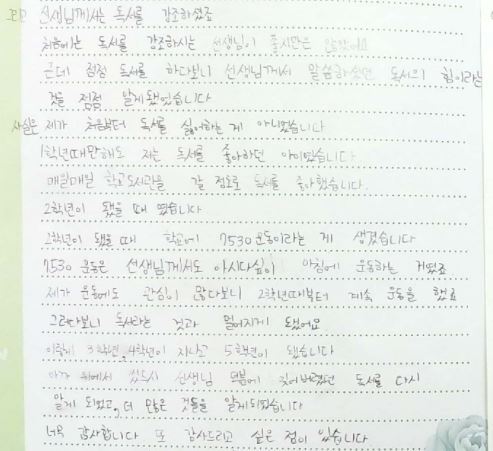 선생님께서는 독서를 강조하셨죠
처음에는 독서를 강조하시는 선생님이 좋지만은 않았어요
근데 점점 독서를 하다보니 선생님께서 말씀하시던 독서의 힘이라는
것을 점점 알게됐었습니다
사실은 제가 처음부터 독서를 싫어하는 게 아니었습니다
1학년때만해도 저는 독서를 좋아하던 아이였습니다
매일매일 학교도서관을 갈 정도로 독서를 좋아했습니다.
2학년이 됐을 때 였습니다
2학년이 됐을 때 학교에 7530운동이라는 게 생겼습니다
7530 운동은 선생님께서도 아시다싶이 아침에 운동하는 거였죠
제가 운동에도 관심이 많다보니 2학년때부터 계속 운동을 했죠
그러다보니 독서라는 것과 멀어지게 됐어요
이렇게 3학년, 4학년이 지나고 5학년이 됐습니다
아까 위에서 썼드시 선생님 덕분에 잊어버렸던 독서를 다시
알게 되었고, 더 많은 것들을 알게되었습니다
너무 감사합니다 또 감사드리고 싶은 점이 있습니다